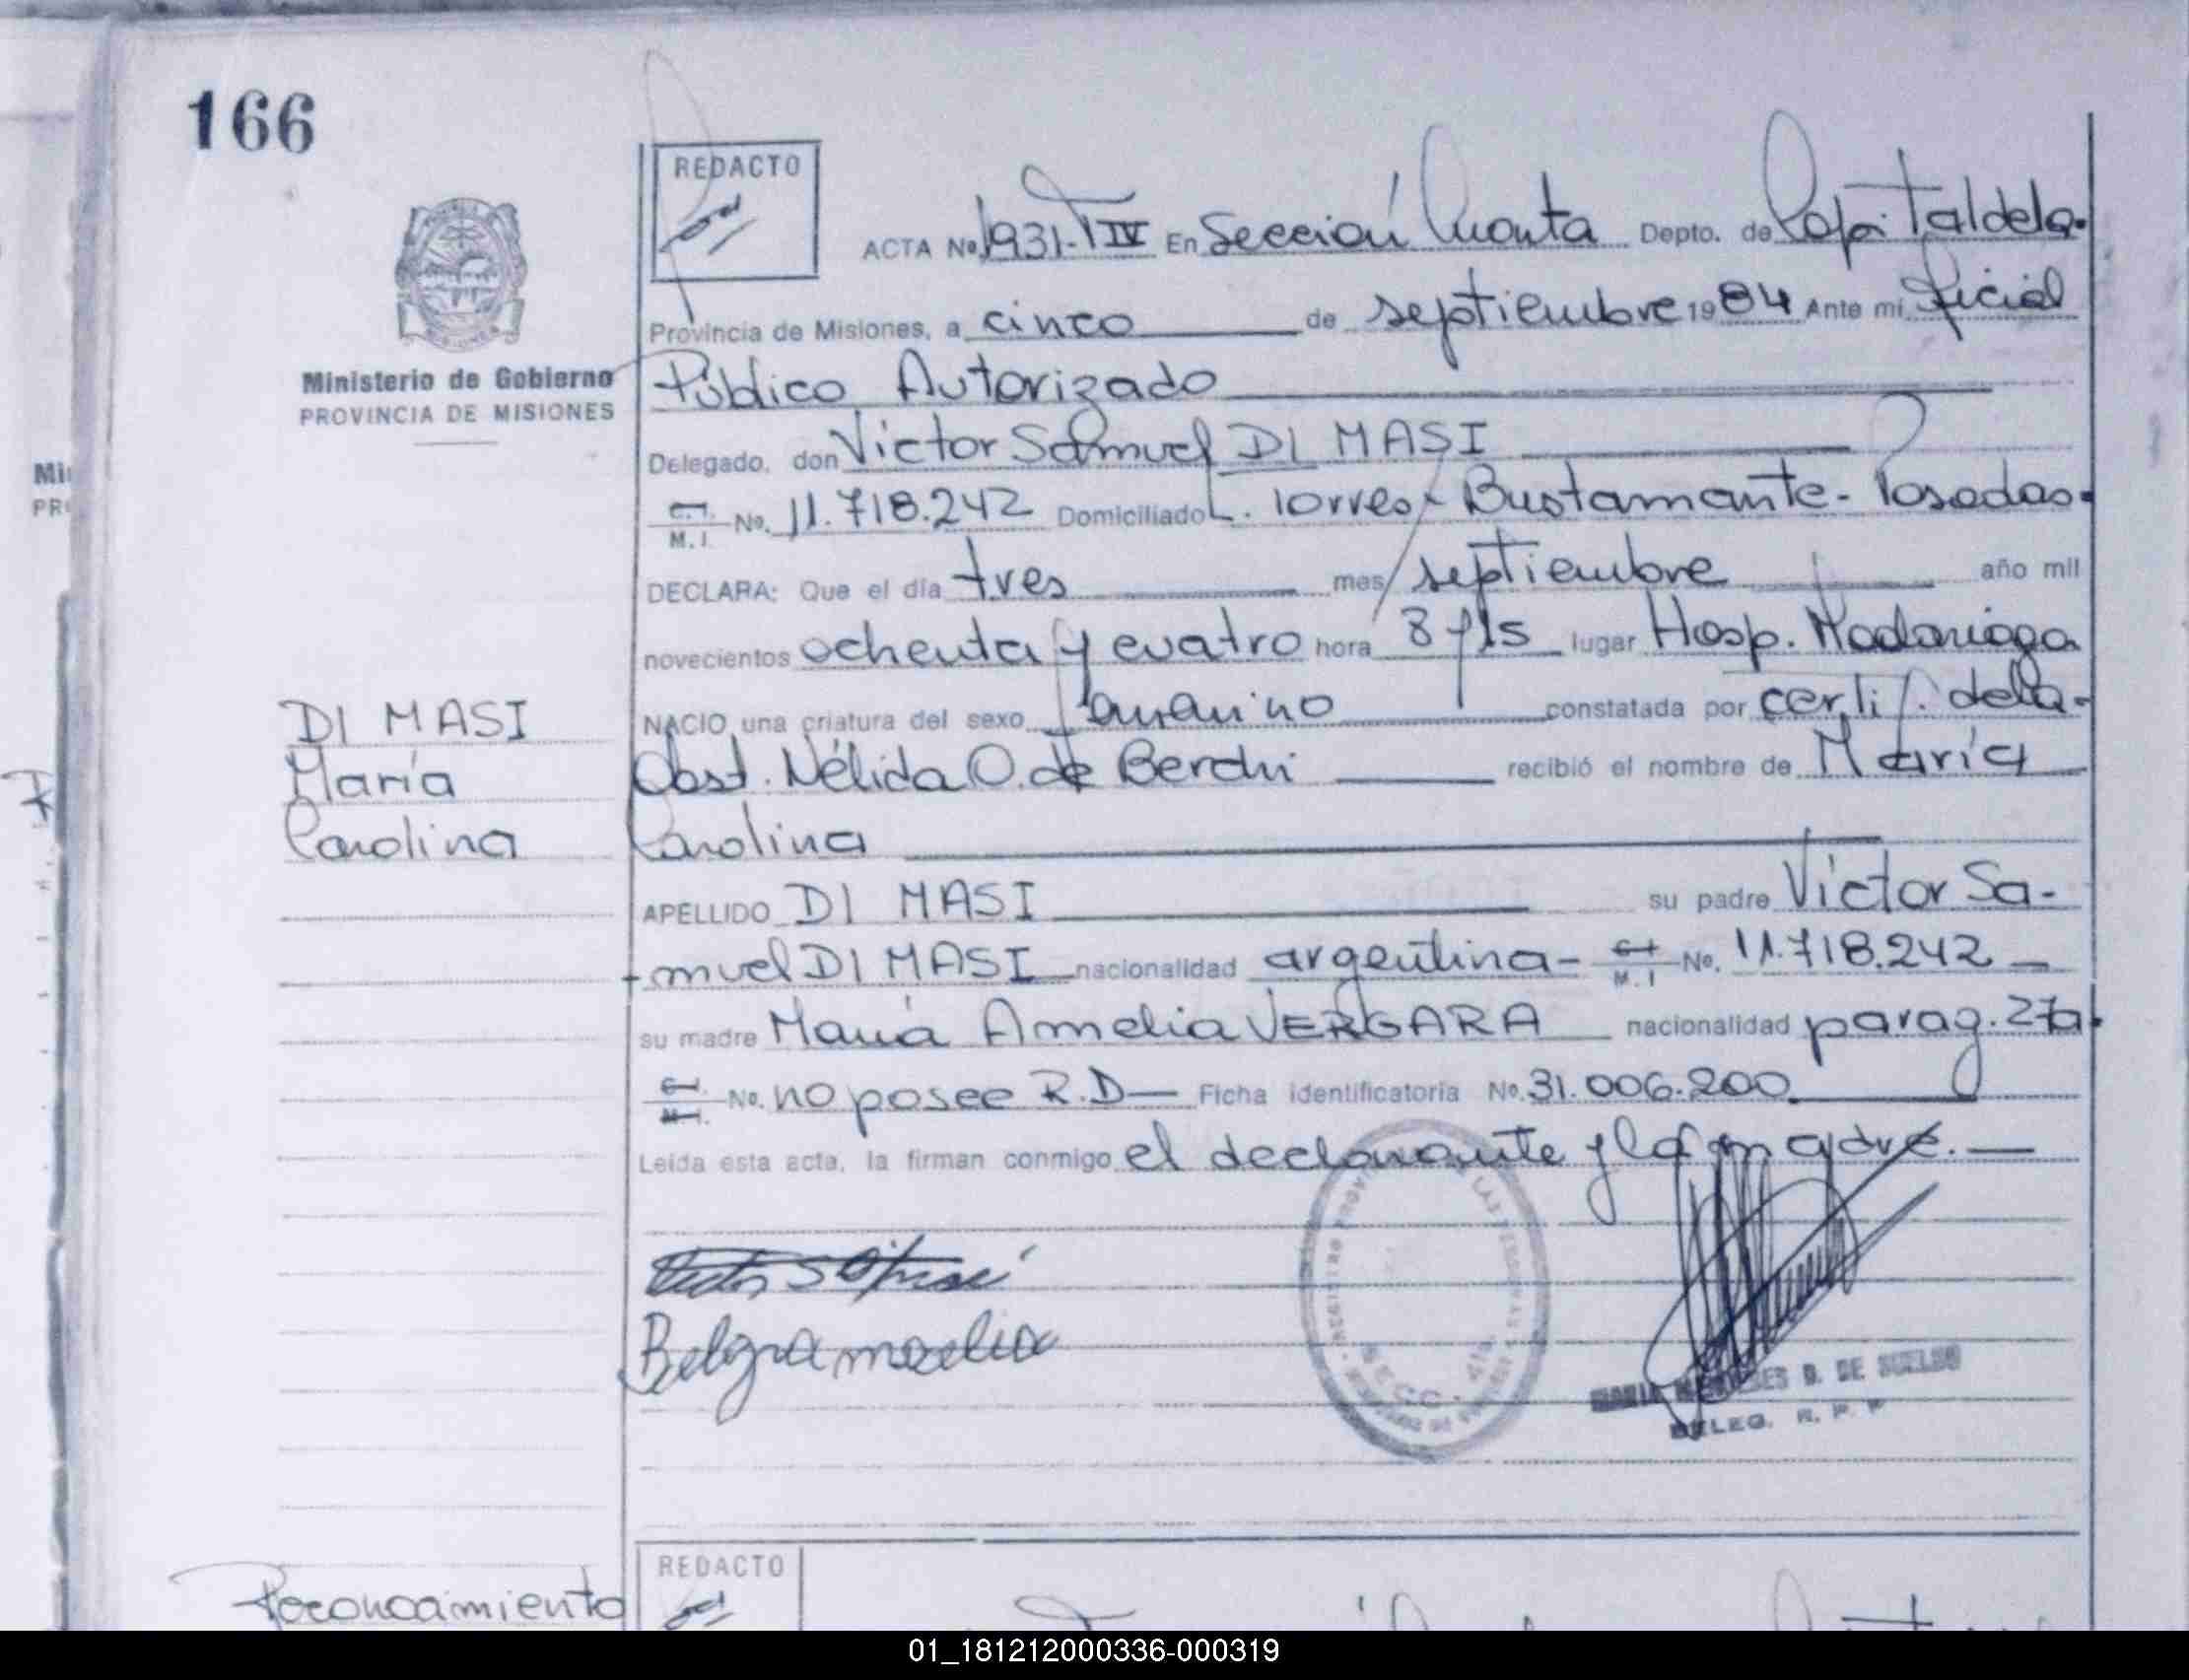 166
REDACTO
ACTA No. 1931-T IV En Sección Cuarta Depto. de Capital dela-
Provincia de Misiones, a cinco de septiembre 1984 Ante mi Oficial
Ministerio de Gobierno
PROVINCIA DE MISIONES
Público Autorizado
Delegado, don Victor Samuel DI MASI
C.I. M.I. No. 11.718.242 Domiciliado L. Torres y Bustamante - Posadas-
DECLARA: Que el día tres mes septiembre año mil
novecientos ochenta y cuatro hora 8 y 15 lugar Hosp. Madariaga
DI MASI
NACIO una criatura del sexo femenino constatada por certif. dela-
María
Obst. Nélida O. de Berchi recibió el nombre de María
Carolina
Carolina
APELLIDO DI MASI su padre Víctor Sa-
-muel DI MASI nacionalidad argentina- C.I. M.I No. 11.718.242
su madre María Amelia VERGARA nacionalidad parag. 27a.
C.I. M.I. No. no posee R.D- Ficha identificatoria No. 31.006.200
Leída esta acta, la firman conmigo el declarante y la madre.
SECC. 4ta.
MARIA MERCEDES D. DE SUELDO
DELEG. R. P. P
Reconocimiento
REDACTO
01_181212000336-000319